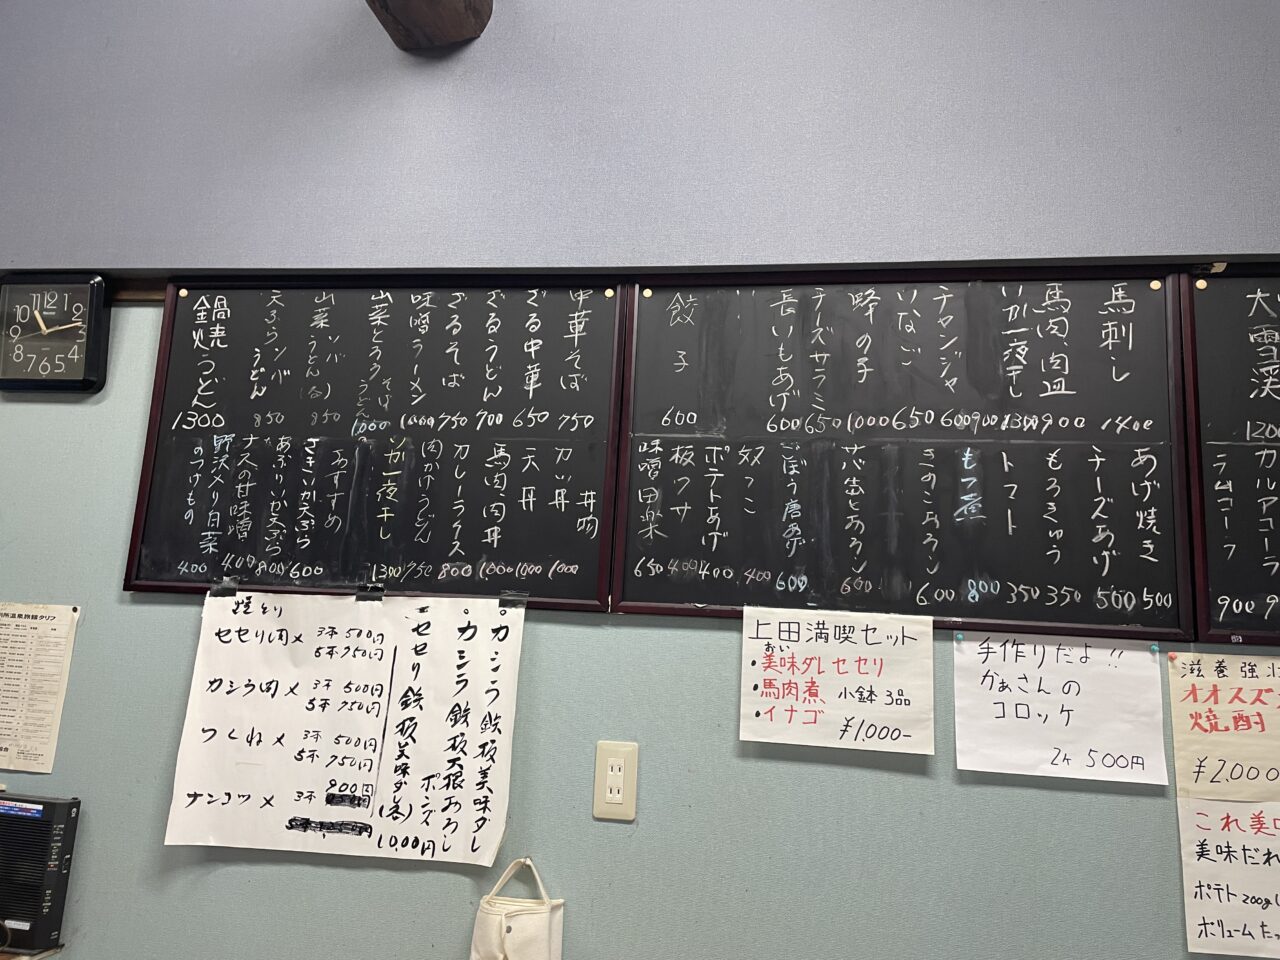 馬刺し 1400
馬肉、肉皿 900
いか一夜干し 1300
チャンジャ 600
いなご 650
蜂の子 1000
チーズサラミ 650
長いもあげ 600
餃子 600
あげ焼き 500
チーズあげ 500
もろきゅう 350
トマト 350
もつ煮 800
きのこおろシ 600
サバ缶とおろシ 600
ごぼう唐あげ 600
奴っこ 400
ポテトあげ 400
板ワサ 400
味噌田楽 650
中華そば 750
ざる中華 650
ざるうどん 700
ざるそば 750
味噌ラーメン 1000
山菜とろろ そば うどん 1000
山菜 ソバ うどん 850
天ぷら ソバ うどん 850
鍋焼うどん 1300
丼物
カツ丼 1000
天丼 1000
馬肉、肉丼 1000
カレーライス 800
肉かけうどん 750
いか一夜干し 1300
おすすめ
さきいか天ぷら 600
あぶりいか天ぷら 800
ナスの甘味噌 400
野沢メリ白菜
のつけもの 400
大雪渓 1200
カルアコーラ
ラムコーク 900
セセリ肉 × 3本 500円
5本 750円
カシラ肉 × 3本 500円
5本 750円
つくね × 3本 500円
5本 750円
ナンコツ × 3本 900円
。カシラ鉄板美味ダレ
。カシラ鉄板大根おろし
ポンズ
セセリ鉄板美味ダレ
(各) 10,00円
上田満喫セット
おい
・美味ダレセセリ
・馬肉煮 小鉢3品
・イナゴ
¥1,000-
手作りだよ!!
かぁさんの
コロッケ
2ケ 500円
滋養強壮
オオスズ
焼酎
¥2.000
これ美味
美味だれ
ポテト200g
ボリュームたっ
別所温泉旅館タリフ
11 12 1
10 2
9 3
8 4
7 6 5